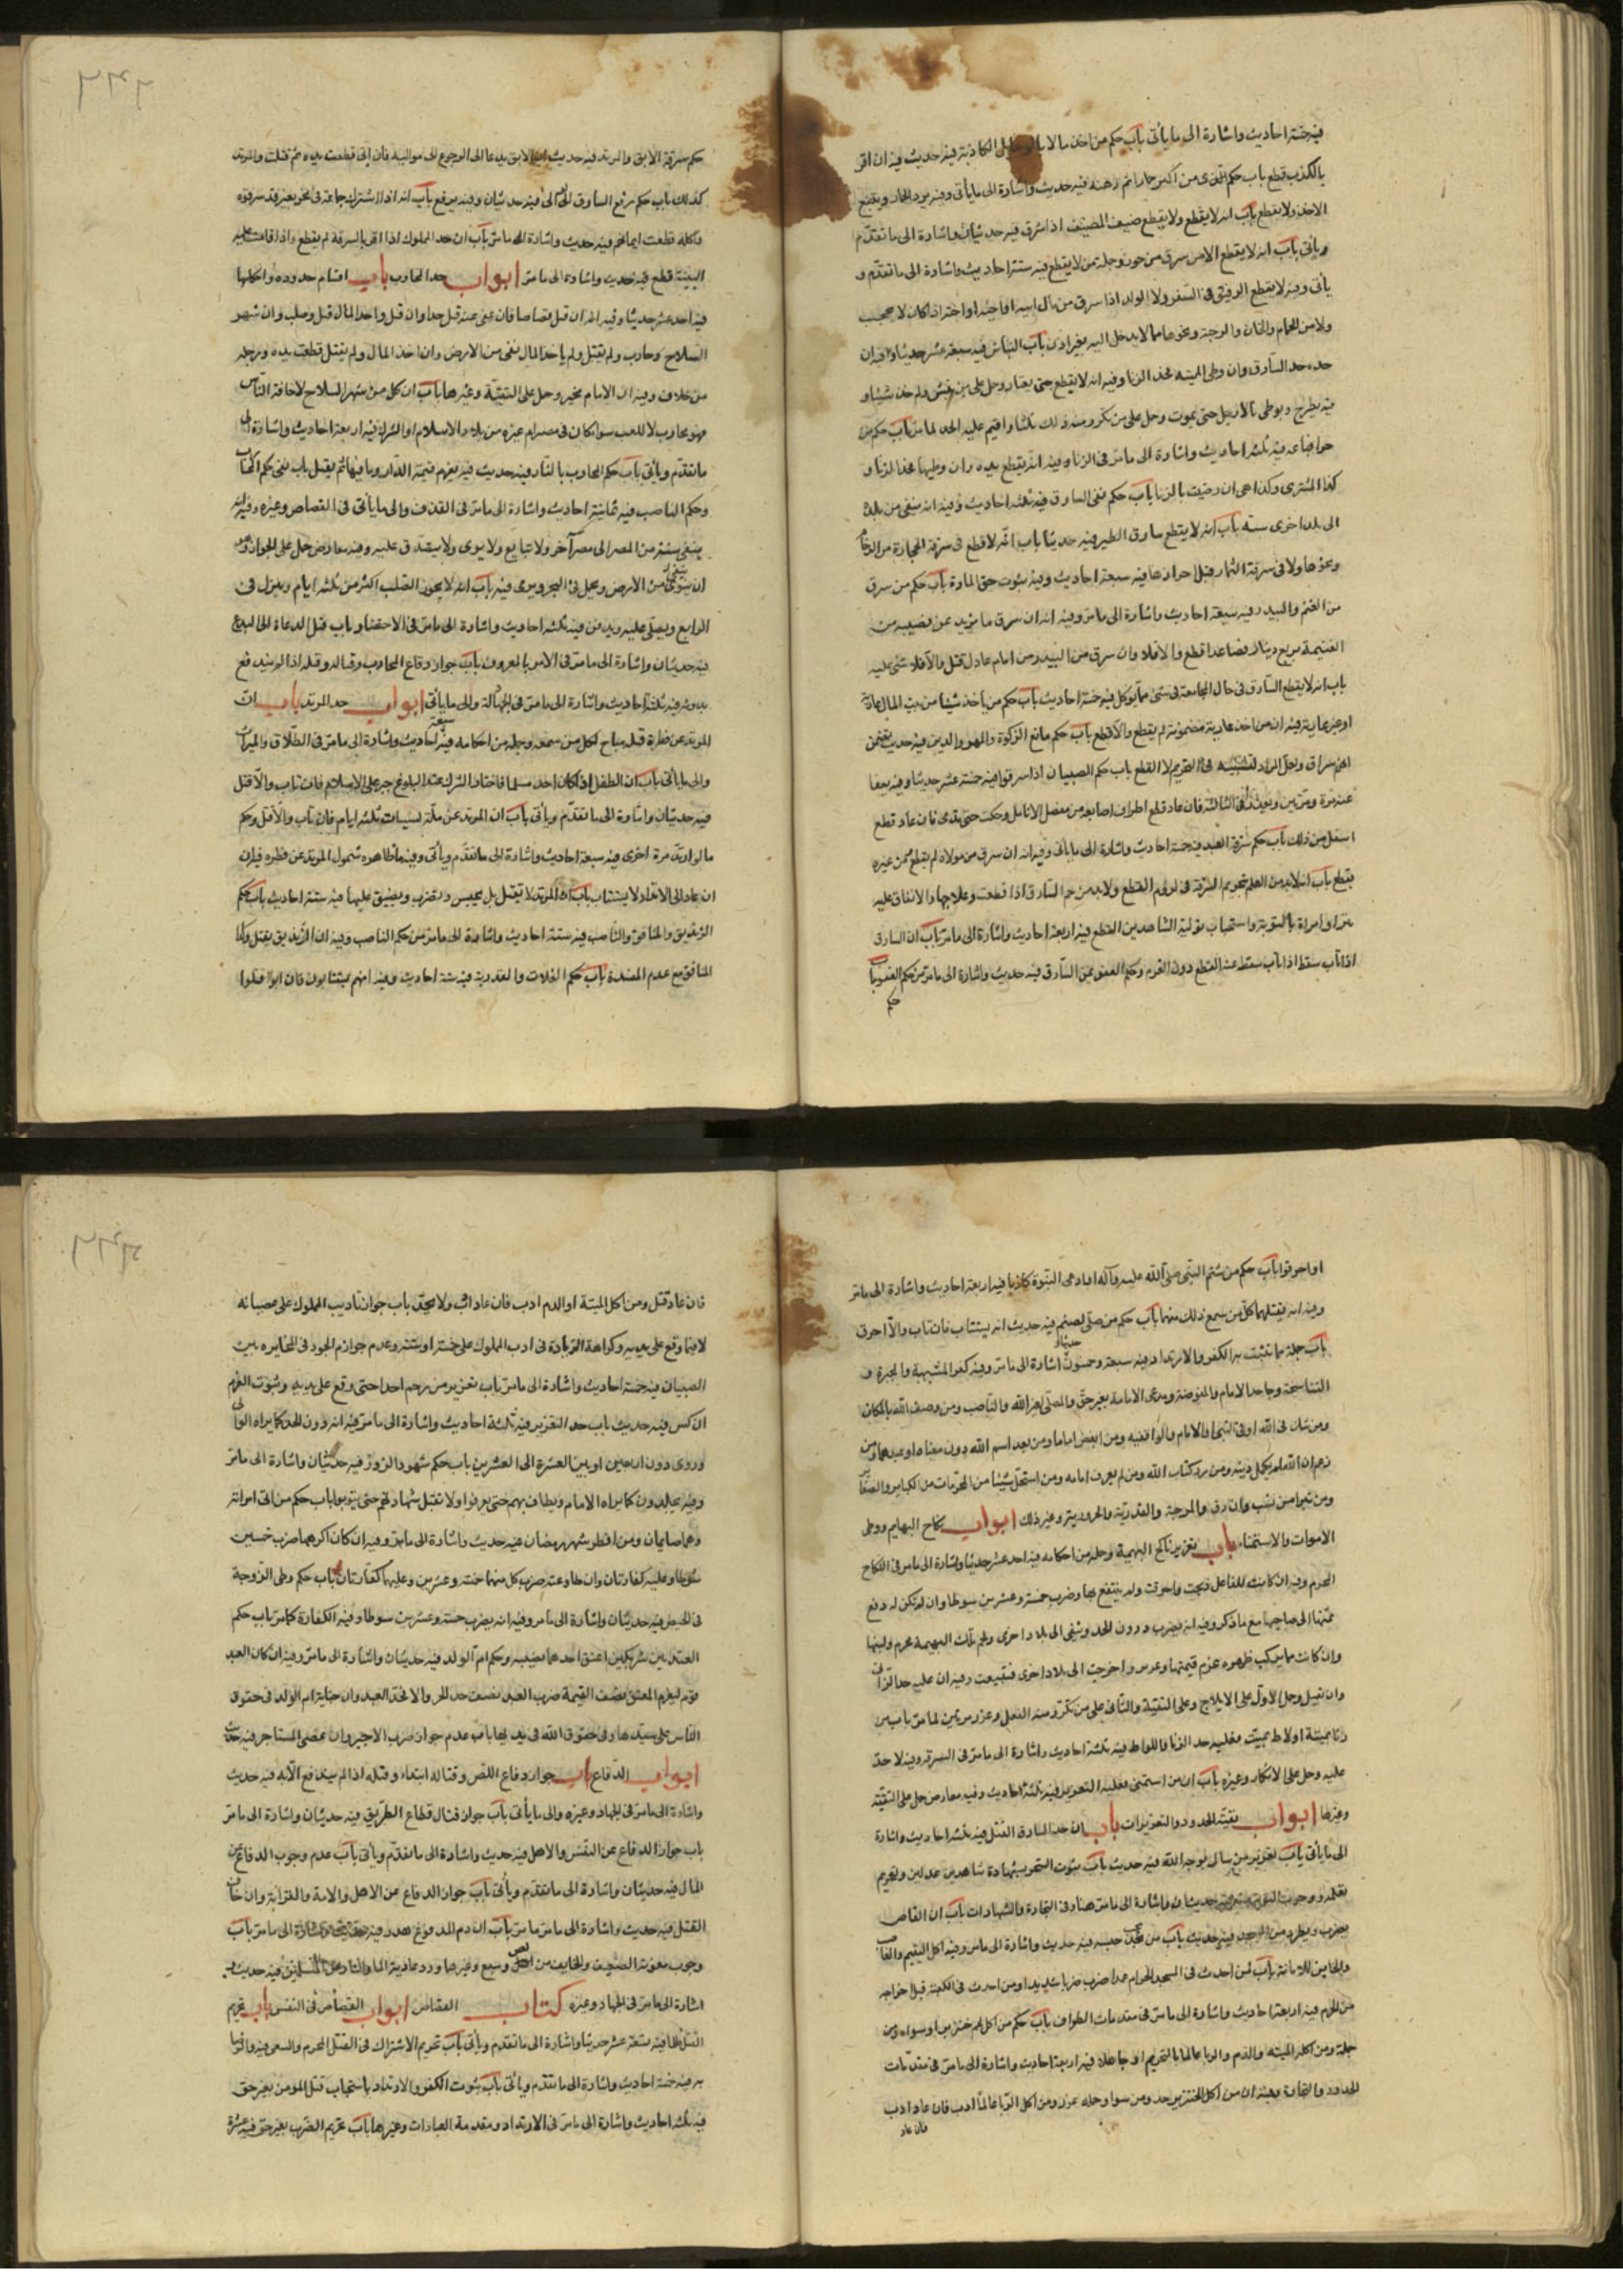 فيه خمسة احاديث واشارة الى ما يأتى باب حكم من اخذ مالا بالرسايل الكاذبة فيه حديث فيه ان اقر
بالكذب قطع باب حكم من اكترى حمارا ثم رهنه فيه حديث واشارة الى ما يأتى وفيه يرد الحمار ويقطع
الاخذ ولا يقطع باب انه لا يقطع ولا يقطع ضيف الضيف اذا سرق فيه حديثان واشارة الى ما تقدم
ويأتى باب انه لا يقطع الا من سرق من حرز وجملة ممن لا يقطع فيه ستة احاديث واشارة الى ما تقدم و
يأتى وفيه لا يقطع الرفيق فى السفر ولا الولد اذا سرق من مال ابيه او اخيه او اخته اذا كان لا يحجب
ولا من الحمام والخان والرحبة ونحوها مما لا بد خل اليه بغير اذن باب النباش فيه سبعة عشر حديثا وفيه ان
حده حد السارق وان وطى الميتة كحد الزنا وفيه انه لا يقطع حتى يعتاد وحمل على من نبش ولم خذ شيئا و
فيه يطرح ويوطى بالارجل حتى يموت وحمل على من تكرر منه ذلك ثلثا واقيم عليه الحد لما مر باب حكم من
حرا فباعه فيه ثلثة احاديث واشارة الى ما مر فى الزنا وفيه انه يقطع يده وان وطيها كحد الزنا و
كذا المشترى وكذا هى ان رضيت بالزنا باب حكم نفى السارق فيه ثلثة احاديث وفيه انه ينفى من بلده
الى بلد اخرى سنة باب انه لا يقطع سارق الطير فيه حديثا باب انه لا قطع فى سرقة الحجارة من الرخام
ونحوها ولا فى سرقة الثمار قبل احرازها فيه سبعة احاديث وفيه ثبوت حق المارة باب حكم من سرق
من الغنم والبيدر فيه سبعة احاديث واشارة الى ما مر وفيه انه ان سرق ما يزيد عن نصيبه من
الغنيمة بربع دينار فصاعدا قطع والا فلا وان سرق من البيدر من امام عادل قتل والا فلا شئ عليه
باب انه لا يقطع السارق فى حال المجاعة فى شئ مما يوكل فيه خمسة احاديث باب حكم من يأخذ شيئا من بيت المال عارية
او غير عارية فيه ان من اخذ عارية مضمونة لم يقطع والا قطع باب حكم مانع الزكوة والمهر والدين فيه حديث يتضمن
انهم سراق ولعل المراد التشبيه فى التحريم لا القطع باب حكم الصبيان اذا سرقوا فيه خمسة عشر حديثا وفيه يعفا
عنه مرة ومرتين ويعزر فى الثالثة فان عاد قطع اطراف اصابعه من مفصل الانامل وحكت حتى تدمى فان عاد قطع
اسفل من ذلك باب حكم سرقة العبد فيه خمسة احاديث واشارة الى ما يأتى وفيه انه ان سرق من مولاه لم يقطع ومن غيره
يقطع باب انه لا بد من العلم بتحريم السرقة فى لزوم القطع ولابد من حم السارق اذا قطعت وعلاجها والانفاق عليه
وامراة بالتوبة واستحباب تولية الشاهدين القطع فيه اربعة احاديث واشارة الى ما مر باب ان السارق
اذا تاب سقط اذا تاب سقط عنه القطع دون الغرم وحكم العفو عن السارق فيه حديث واشارة الى ما مر من حكم العفو باب
حكم
حكم سرقة الابق والمرتد فيه حديث ان الابق يدعا الى الرجوع الى مواليه فان ابى قطعت يده ثم قتلت والمرتد
كذلك باب حكم رفع السارق الى الوالى فيه حديثان وفيه يرفع باب انه اذا اشترك جماعة فى نحو بعير قد سرقوه
واكله قطعت ايمانهم فيه حديث واشارة الى ما مر باب ان حد المملوك اذا اقر بالسرقة لم يقطع واذا قامت عليه
البينة قطع فيه حديث واشارة الى ما مر ابواب حد المحارب باب اقسام حدوده واحكامها
فيه احد عشر حديثا وفيه انه ان قتل قصاصا فان عفى عنه قتل حدا وان قتل واخذ المال قتل وصلب وان شهر
السلاح وحارب ولم يقتل ولم ياخذ المال نفى من الارض وان اخذ المال ولم يقتل قطعت يده ورجله
من خلاف وفيه ان الامام مخير وحمل على التقية وغيرها باب ان كل من شهر السلاح لاخافة الناس
فهو محارب لا للعب سواء كان فى مصر ام غيره من بلاد الاسلام او الشرك فيه اربعة احاديث واشارة الى
ما تقدم ويأتى باب حكم المحارب بالنار فيه حديث فيه يغرم قيمة الدار وما فيها ثم يقتل باب نفى حكم المحارب
وحكم الناصب فيه ثمانية احاديث واشارة الى ما مر فى القذف والى ما يأتى فى القصاص وغيره وفيه انه
ينفى سنة من المصر الى مصر آخر ولا تبايع ولا يوى ولا يتصدق عليه وفيه معارض حمل على الجواز
ان يتوى من الارض وحمل فى البحر ويرمى فيه باب انه لا يجوز الصلب اكثر من ثلثة ايام وينزل فى
الرابع ويصلى عليه ويدفن فيه ثلثة احاديث واشارة الى ما مر فى الاحتضار باب قتل الدعاة الى البدع
فيه حديثان واشارة الى ما مر فى الامر بالمعروف باب جواز دفاع المحارب وقتاله وقتله اذا لم يندفع
بدونه فيه ثلثة احاديث واشارة الى ما مر فى الجهاد والى ما يأتى ابواب حد المرتد باب ان
المرتد عن فطرة قتله مباح لكل من سمعه وجملة من احكامه فيه سبعة احاديث واشارة الى ما مر فى الطلاق والميراث
والى ما يأتى باب ان الطفل اذا كان احد مسلما فاختار الشرك عند البلوغ جبر على الاسلام فان تاب والا قتل
فيه حديثان واشارة الى ما تقدم ويأتى باب ان المرتد عن ملة يستتاب ثلثة ايام فان تاب والا قتل وحكم
ما لو ارتد مرة اخرى فيه سبعة احاديث واشارة الى ما تقدم ويأتى وفيه ما ظاهره شمول المرتد عن فطرة فيه ان
ان عاد الى الارتداد لا يستتاب باب ان المرتدة لا تقتل بل تحبس وتضرب ويضيق عليها فيه ستة احاديث باب حكم
الزنديق والمنافق والناصب فيه ستة احاديث واشارة الى ما مر من حكم الناصب وفيه ان الزنديق يقتل وكذا
المنافق مع عدم المفسدة باب حكم الغلات والقدرية فيه ستة احاديث وفيه انهم يستتابون فان ابوا قتلوا
او احرقوا باب حكم من شتم النبى صلى الله عليه وآله او ادعى النبوة كاذبا فيه اربعة احاديث واشارة الى ما مر
وفيه انه يقتلهما كل من سمع ذلك منهما باب حكم من صلى لصنم فيه حديث انه يستتاب فان تاب والا احرق
باب جملة ما تثبت به الكفر والارتداد فيه سبعة وخمسون حديثا واشارة الى ما مر وفيه كفر المشبهة والمجبرة و
التناسخية وجاحد الامام والمفوضة ومدعى الامامة بغير حق والمصلى لغير الله والناصب ومن وصف الله بالمكان
ومن شك فى الله او فى النبى او الامام والواقفية ومن ابغض اماما ومن يعبد اسم الله دون معناه او عبدهما ومن
زعم ان الله لم يكمل دينه ومن يرد كتاب الله ومن لم يعرف امامه ومن استحل شيئا من المحرمات من الكباير والصغاير
ومن تبرا من نسب وان دق والمرجئة والقدرية والحرورية وغير ذلك ابواب نكاح البهايم ووطى
الاموات والاستمناء باب تعزير ناكح البهيمة وجملة من احكامه فيه احد عشر حديثا واشارة الى ما مر فى النكاح
المحرم وفيه ان كانت للفاعل ذبحت واحرقت ولم ينتفع بها وضرب خمسة وعشرين سوطا وان لم تكن له دفع
ثمنها الى صاحبها مع ما ذكر وفيه انه يضرب دون الحد وينفى الى بلاد اخرى ولحم تلك البهيمة محرم ولبنها
وان كانت مما يركب ظهره غرم قيمتها وعزر واخرجت الى بلاد اخرى فبيعت وفيه ان عليه حد الزانى
وان يقتل وحمل الاول على الايلاج وعلى التقية والثانى على من تكرر منه الفعل وعزر مرتين لما مر باب من
زنا بميتة اولاط بميت فعليه حد الزنا واللواط فيه ثلثة احاديث واشارة الى ما مر فى السرقة وفيه لا حد
عليه وحمل على الانكار وغيره باب ان من استمنى فعليه التعزير فيه ثلثة احاديث وفيه معارض حمل على التقية
وغيرها ابواب بقية الحدود والتعزيرات باب ان حد الساحر القتل فيه ثلثة احاديث واشارة
الى ما يأتى باب تعزير من سال بوجه الله فيه حديث باب ثبوت السحر بشهادة شاهدين عدلين وتحريم
تعلمه ووجوب التوبة منه فيه حديثان واشارة الى ما مر هنا وفى التجارة والشهادات باب ان القاص
يضرب ويطرد من المسجد فيه حديث باب من حبسه فيه حديث واشارة الى ما مر وفيه اكل اليتيم والغاصب
والخاين للامانة باب من احدث فى المسجد الحرام عمدا ضرب ضربا شديدا ومن احدث فى الكعبة قتل اخراجه
من الحرم فيه اربعة احاديث واشارة الى ما مر فى مقدمات الطواف باب حكم من اكل لحم خنزير او سواه ومن
جملة ومن اكله الميتة والدم والربا عالما بالتحريم او جاهلا فيه اربعة احاديث واشارة الى ما مر فى مقدمات
الحدود والتجارة وفيه ان من اكل الخنزير حد ومن سوا وحمله عزر ومن اكل الربا عالما ادب فان عاد ادب
فان عاد
فان عاد قتل ومن اكل الميتة او الدم ادب فان عاد ادب ولا يحد باب جواز تاديب المملوك على عصيانه
لا فيما وقع على يديه وكراهة الزيادة فى ادب المملوك على خمسة او ستة وعدم جوازه الجور فى المخايرة بين
الصبيان فيه خمسة احاديث واشارة الى ما مر باب تعزير من زحم احدا حتى وقع على يديه وثبوت الغرم
ان كسر فيه حديث باب حد التعزير فيه ثلثة احاديث واشارة الى ما مر فيه انه دون الحد كما يراه الوالى
وروى دون اربعين او بين العشرة الى العشرين باب حكم شهود الزور فيه حديثان واشارة الى ما مر
وفيه يجلدون كما يراه الامام ويطاف بهم حتى يعرفوا ولا تقبل شهادتهم حتى يتوبوا باب حكم من اتى امراته
وهما صايمان ومن افطر شهر رمضان فيه حديث واشارة الى ما مر وفيه ان كان اكرهها ضرب خمسين
سوطا وعليه كفارتان وان طاوعته ضرب كل منهما خمسة وعشرين وعليهما كفارتان باب حكم وطى الزوجة
فى الحيض فيه حديثان واشارة الى ما مر وفيه انه يضرب خمسة وعشرين سوطا وفيه الكفارة كما مر باب حكم
العبد بين شريكين اعتق احدهما نصيبه وحكم ام الولد فيه حديثان واشارة الى ما مر وفيه ان كان العبد
قوم ليغرم المعتق نصف القيمة ضرب العبد نصف حد الحر والا فحد العبد وان جناية ام الولد فى حقوق
الناس على سيدها وفى حقوق الله فى بدنها باب عدم جواز ضرب الاجير وان عصى المستاجر فيه حديث
ابواب الدفاع باب جواز دفاع اللص وقتاله ابتداء وقتله اذا لم يندفع الا به فيه حديث
واشارة الى ما مر فى الجهاد وغيره والى ما يأتى باب جواز قتال قطاع الطريق فيه حديثان واشارة الى ما مر
باب جواز الدفاع عن النفس والاهل فيه حديث واشارة الى ما تقدم ويأتى باب عدم وجوب الدفاع عن
المال فيه حديثان واشارة الى ما تقدم ويأتى باب جواز الدفاع عن الاهل والامة والقرابة وان خاف
القتل فيه حديث واشارة الى ما مر باب ان دم المدفوع هدر فيه حديث واشارة الى ما مر باب
وجوب معونة الضعيف والخايف من لص وسبع وغيرها ورد عادية الماء والنار عن المسلمين فيه حديث و
اشارة الى ما مر فى الجهاد وغيره كتاب القصاص ابواب القصاص فى النفس باب تحريم
القتل ظلما فيه سبعة عشر حديثا واشارة الى ما تقدم ويأتى باب تحريم الاشتراك فى القتل المحرم والسعى فيه والرضا
به فيه خمسة احاديث واشارة الى ما تقدم ويأتى باب ثبوت الكفر والارتداد باستحباب قتل المومن بغير حق
فيه ثلثة احاديث واشارة الى ما مر فى الارتداد ومقدمة العبادات وغيرها باب تحريم الضرب بغير حق فيه عشرة